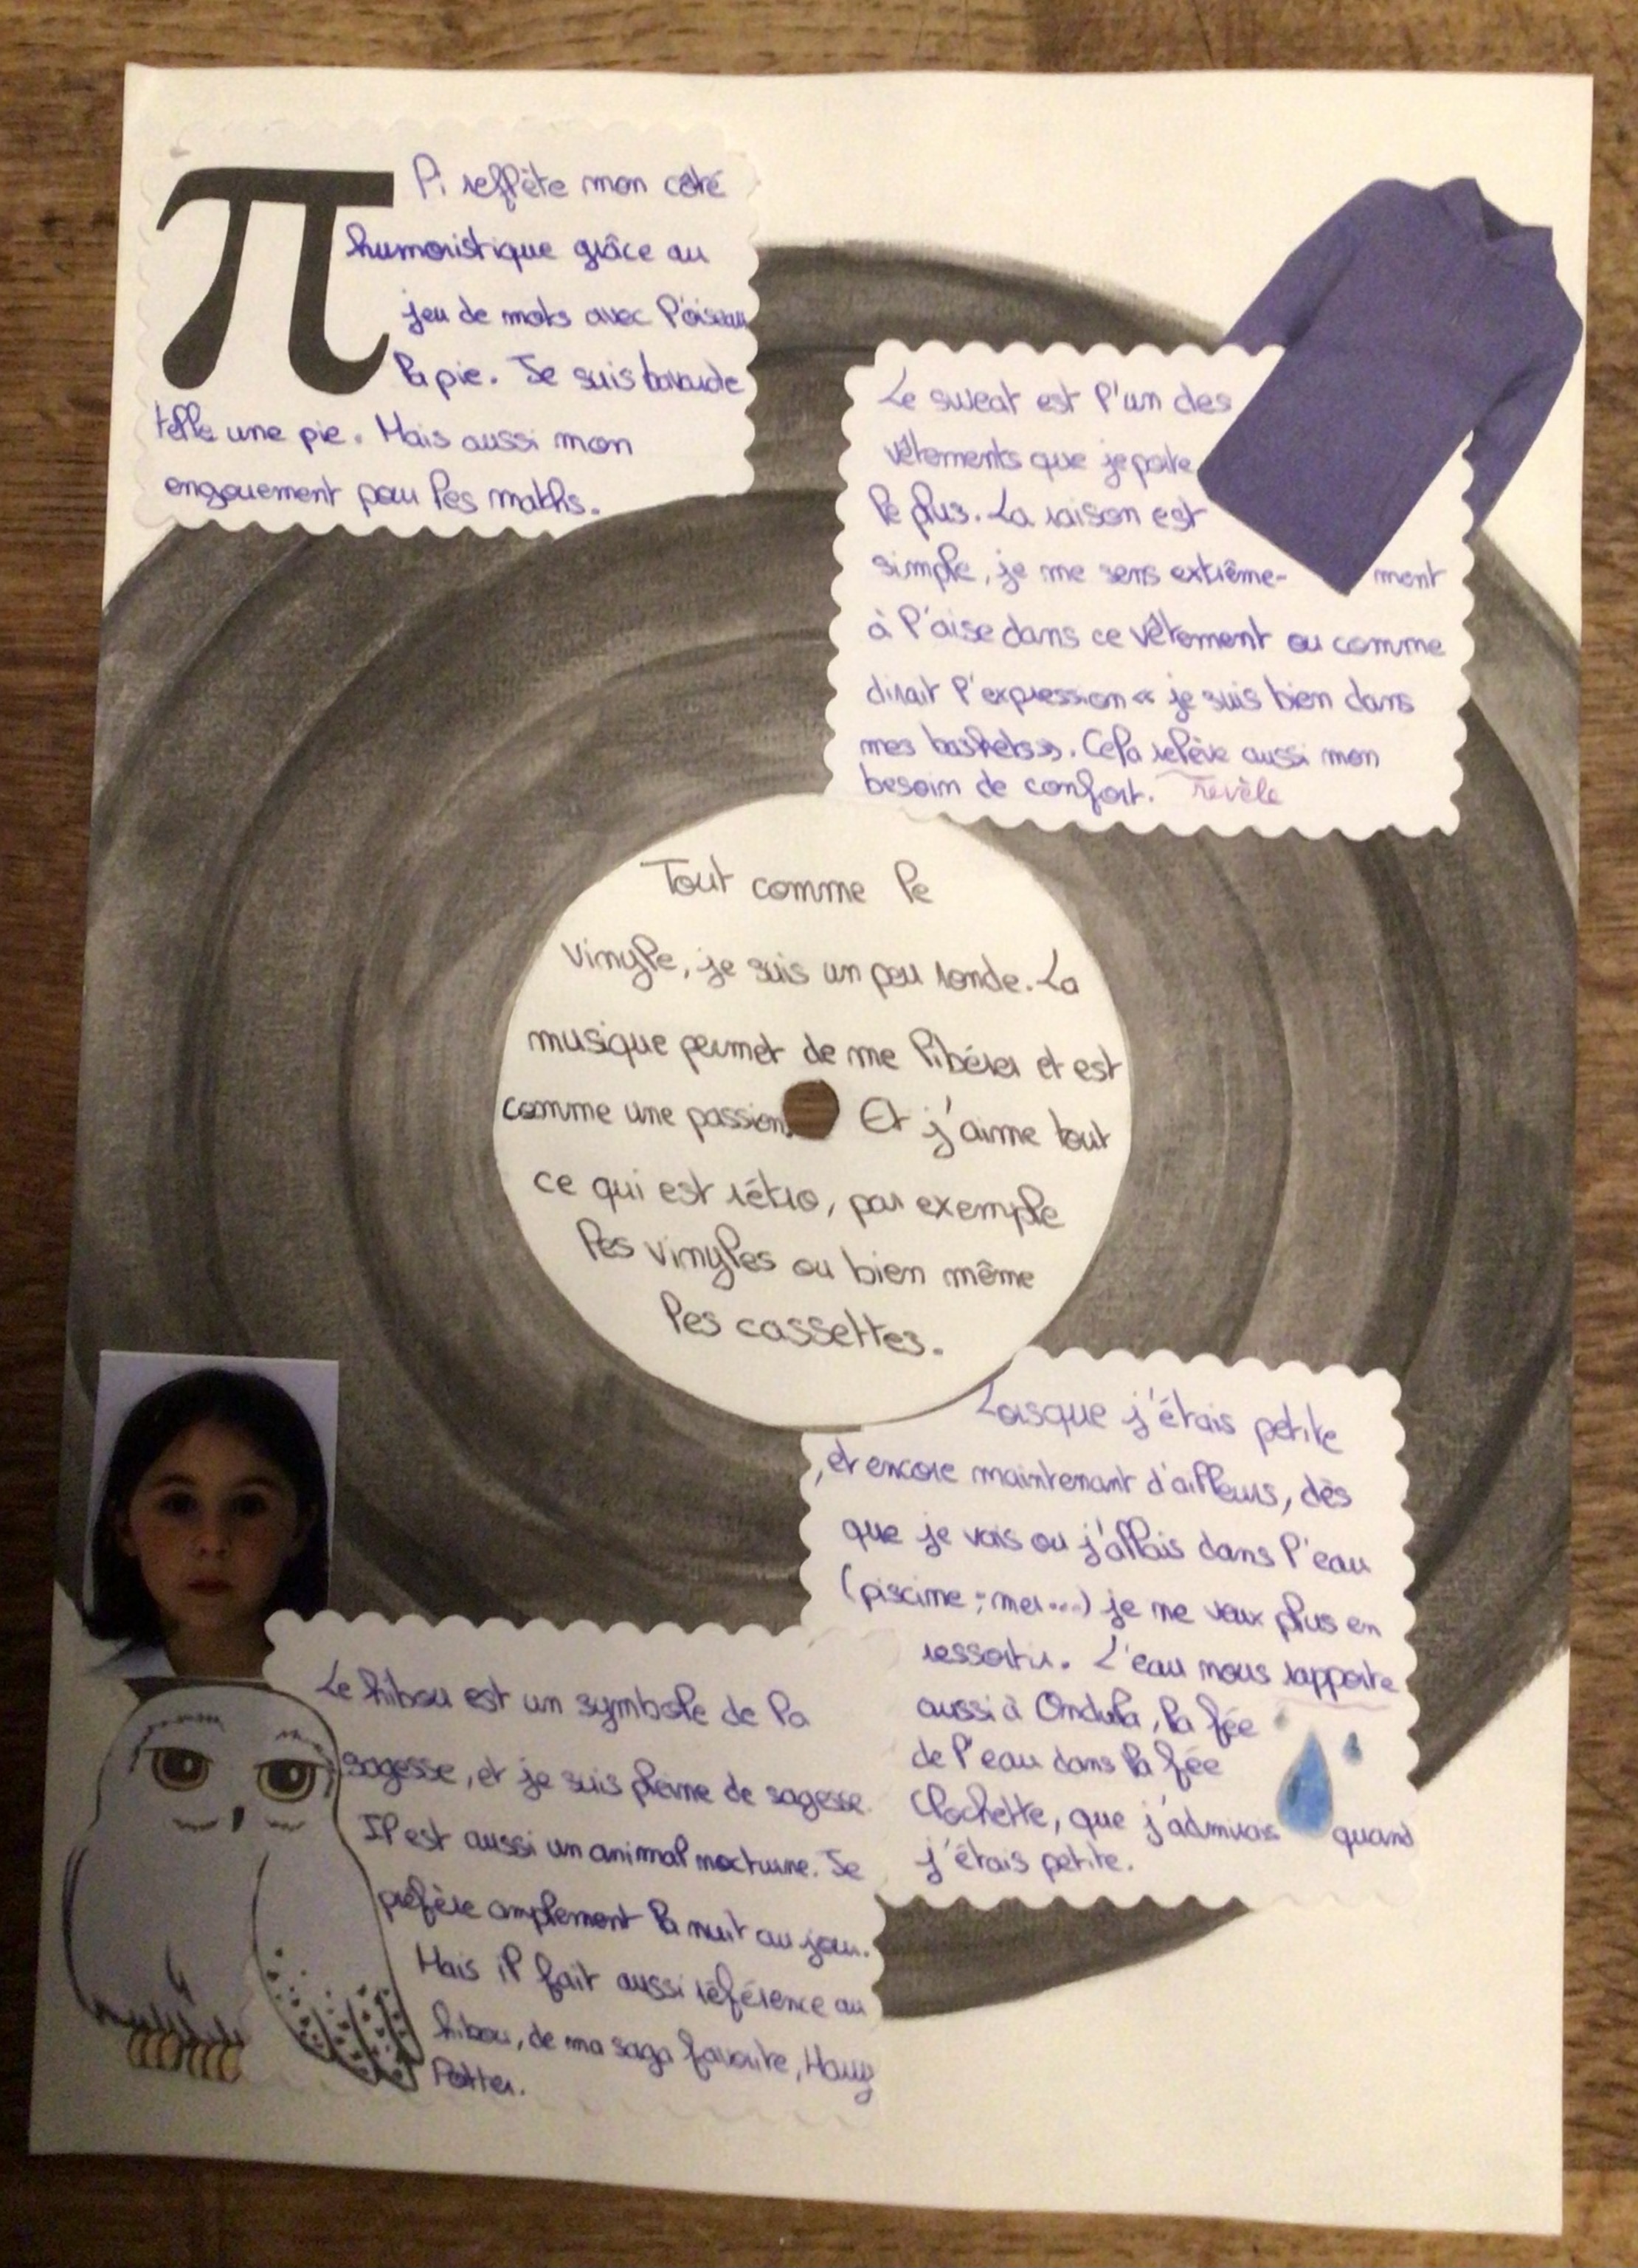 π
Pi reflète mon côté
humoristique grâce au
jeu de mots avec l'oiseau
la pie. Je suis bavarde
telle une pie. Mais aussi mon
engouement pour les maths.
Le sweat est l'un des
vêtements que je porte
le plus. La raison est
simple, je me sens extrême- ment
à l'aise dans ce vêtement ou comme
dirait l'expression « je suis bien dans
mes baskets». Cela relève aussi mon
besoin de confort. révèle
Tout comme le
vinyle, je suis un peu ronde. La
musique permet de me libérer et est
comme une passion. Et j'aime tout
ce qui est rétro, par exemple
les vinyles ou bien même
les cassettes.
Lorsque j'étais petite
, et encore maintenant d'ailleurs, dès
que je vais ou j'allais dans l'eau
(piscine ; mer...) je ne veux plus en
ressortir. L'eau nous rapporte
aussi à Ondula, la fée
de l'eau dans la fée
Clochette, que j'admirais quand
j'étais petite.
Le hibou est un symbole de la
sagesse, et je suis pleine de sagesse.
Il est aussi un animal nocturne. Je
préfère amplement la nuit au jour.
Mais il fait aussi référence au
hibou, de ma saga favorite, Harry
Potter.